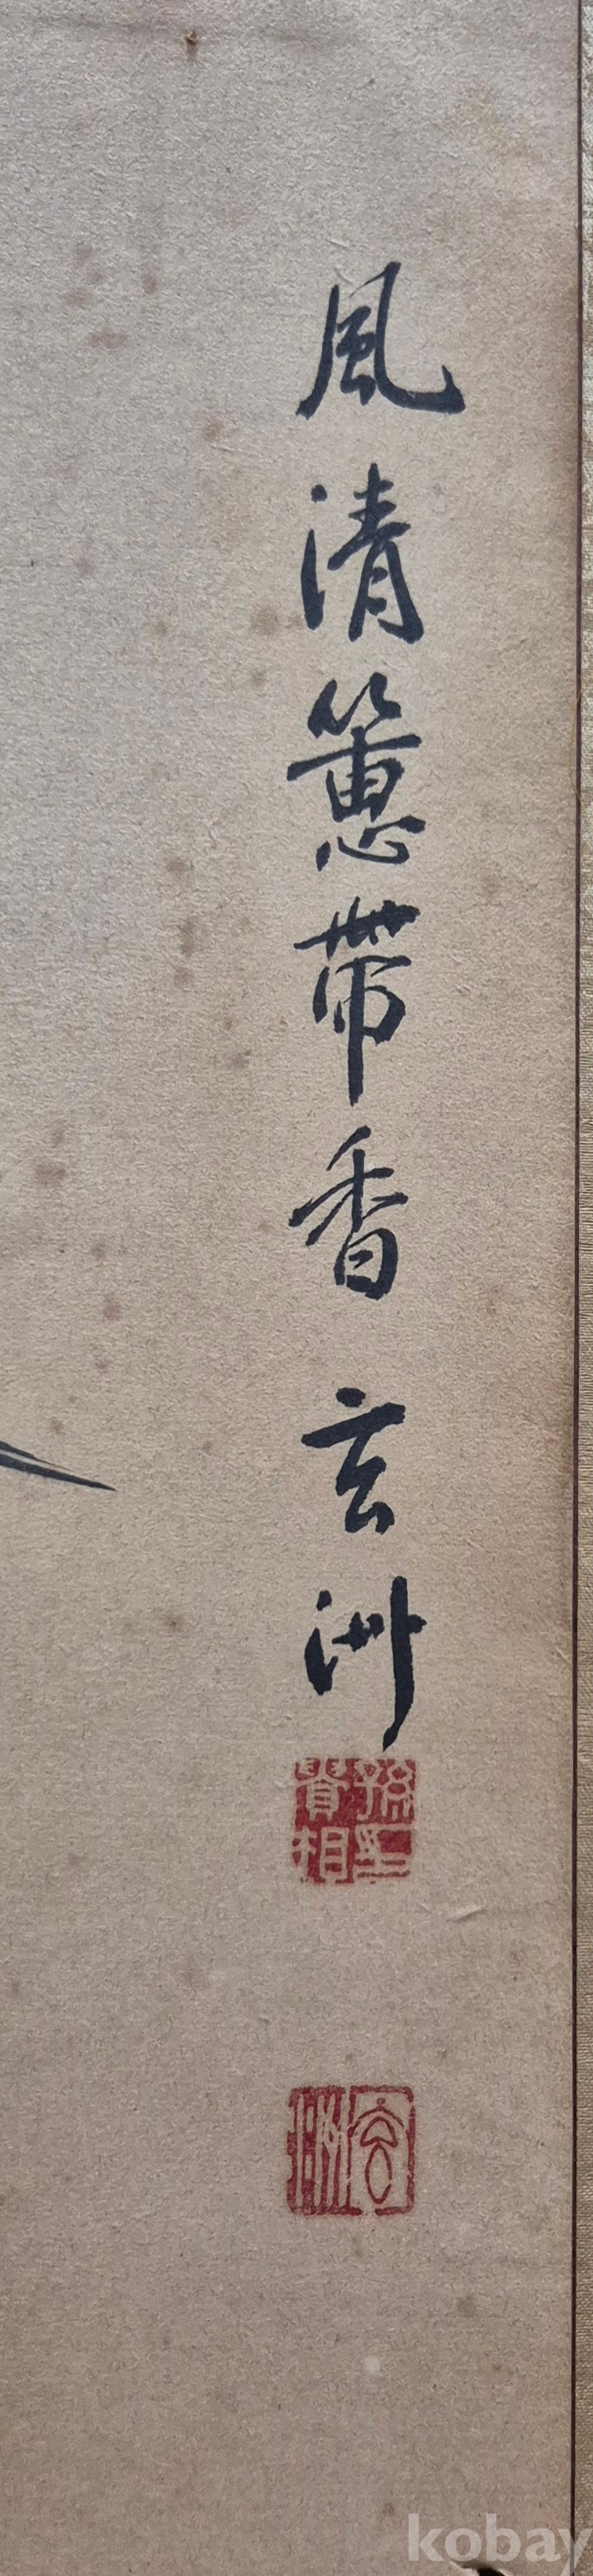 風清蕙帶香 玄洲
玄洲
kobay